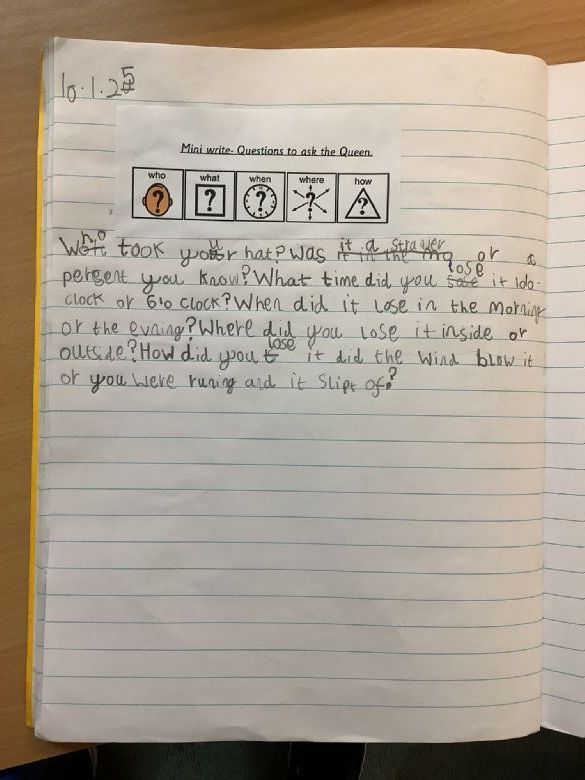 10.1.25
Mini write- Questions to ask the Queen.
who what when where how
Who took your hat? Was it a strayer or a
pergent you know? What time did you lose it 1o o-
clock or 6 'o clock? When did it lose in the morning
or the evning? Where did you lose it inside or
outside? How did you lose it did the wind blow it
or you were runing and it slipt of?